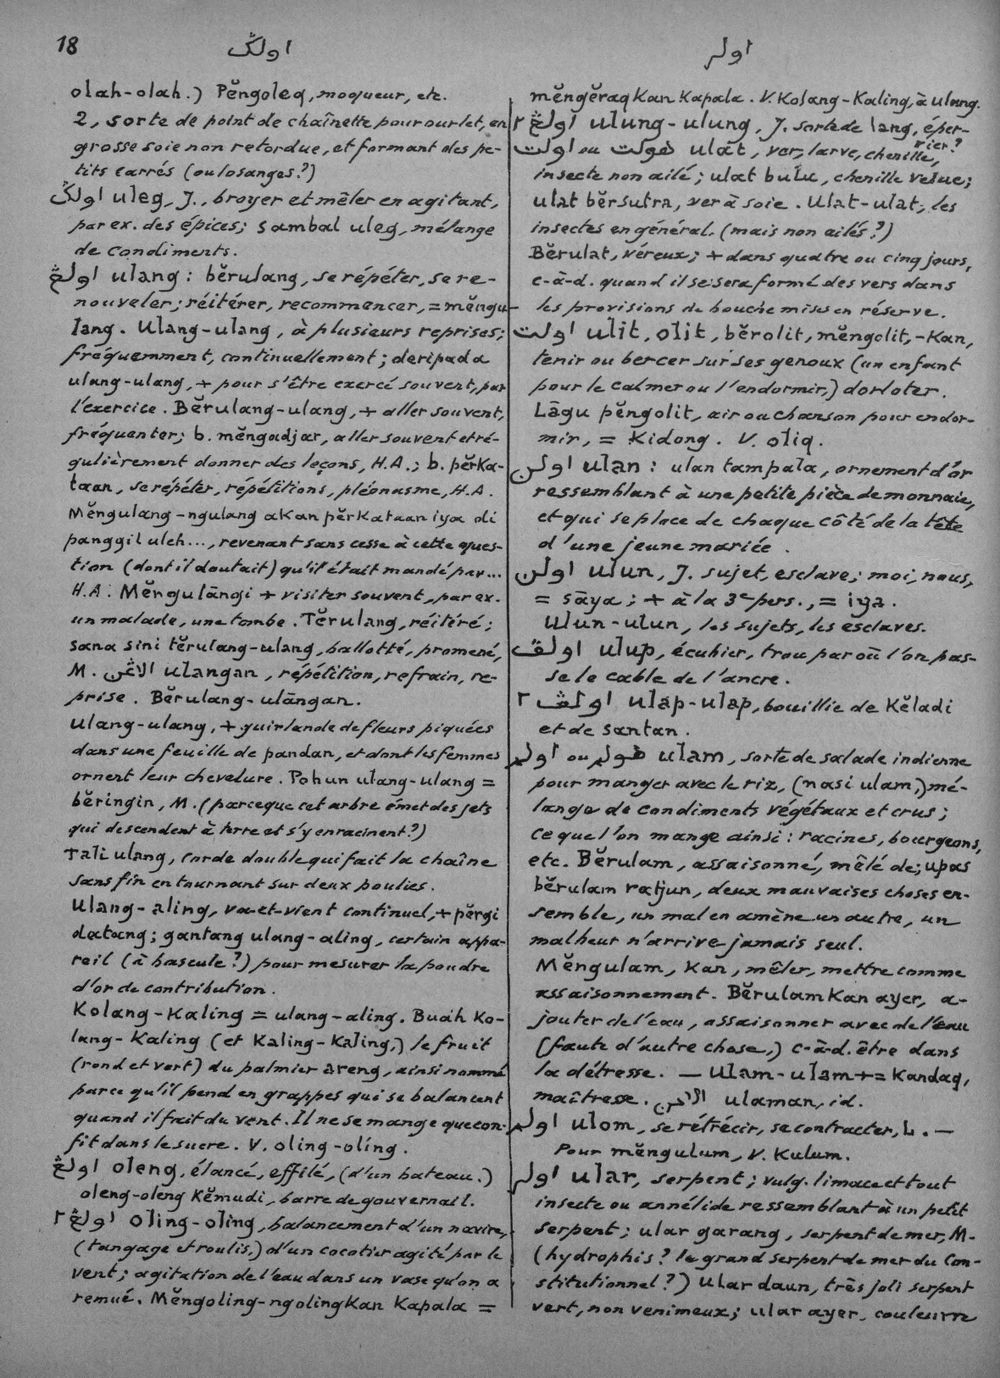 18
اولݢ
اولر
olah-olah.) Pĕngoleq, moqueur, etc.
2, sorte de point de chaînette pour ourlet, en
grosse soie non retordue, et formant des pe-
tits carrés (ou losanges?)
اولݢ uleg, J., broyer et mêler en agitant,
par ex. des épices; sambal uleg, mélange
de condiments.
اولڠ ulang: bĕrulang, se répéter, se re-
nouveler; réitérer, recommencer, = mĕngu-
lang. Ulang-ulang, à plusieurs reprises;
fréquemment, continuellement; deripada
ulang-ulang, + pour s'être exercé souvent, par
l'exercice. Bĕrulang-ulang, + aller souvent,
fréquenter; b. mĕngadjar, aller souvent et ré-
gulièrement donner des leçons, H.A.; b. pĕrka-
taan, se répéter, répétitions, pléonasme, H.A.
Mĕngulang-ngulang akan pĕrkataan iya di
panggil uleh..., revenant sans cesse à cette ques-
tion (dont il doutait) qu'il était mandé par...
H.A. Mĕngulāngi + visiter souvent, par ex.
un malade, une tombe. Tĕrulang, réitéré;
sana sini tĕrulang-ulang, ballotté, promené,
M. الاڠن ulangan, répétition, refrain, re-
prise. Bĕrulang-ulāngan.
Ulang-ulang, + guirlande de fleurs piquées
dans une feuille de pandan, et dont les femmes
ornent leur chevelure. Pohun ulang-ulang =
bĕringin, M. (parceque cet arbre émet des jets
qui descendent à terre et s'y enracinent?)
Tali ulang, corde double qui fait la chaîne
sans fin en tournant sur deux poulies.
Ulang-aling, va-et-vient continuel, + pĕrgi
datang; gantang ulang-aling, certain appa-
reil (à bascule?) pour mesurer la poudre
d'or de contribution.
Kolang-Kaling = ulang-aling. Buah Ko-
lang-Kaling (et Kaling-Kaling,) le fruit
(rond et vert) du palmier areng, ainsi nommé
parce qu'il pend en grappes qui se balancent
quand il fait du vent. Il ne se mange que con-
fit dans le sucre. V. oling-oling.
اولڠ oleng, élancé, effilé, (d'un bateau.)
oleng-oleng Kĕmudi, barre de gouvernail.
اولڠ٢ oling-oling, balancement d'un navire,
(tangage et roulis,) d'un cocotier agité par le
vent; agitation de l'eau dans un vase qu'on a
remué. Mĕngoling-ngolingkan Kapala =
mĕngĕraqkan Kapala. V. Kolang-Kaling, à ulang.
اولڠ٢ ulung-ulung, J. sorte de lang, éper-
vier?
اولت ou هولت ulat, ver, larve, chenille,
insecte non ailé; ulat bulu, chenille velue;
ulat bĕrsutra, ver à soie. Ulat-ulat, les
insectes en général. (mais non ailés?)
Bĕrulat, véreux; + dans quatre ou cinq jours,
c-à-d. quand il se sera formé des vers dans
les provisions de bouche mises en réserve.
اولت ulit, olit, bĕrolit, mĕngolit, -Kan,
tenir ou bercer sur ses genoux (un enfant
pour le calmer ou l'endormir,) dorloter.
Lāgu pĕngolit, air ou chanson pour endor-
mir, = Kidong. V. oliq.
اولن ulan: ulan tampala, ornement d'or
ressemblant à une petite pièce de monnaie,
et qui se place de chaque côté de la tête
d'une jeune mariée.
اولن ulun, J. sujet, esclave; moi, nous,
= sāya; + à la 3e pers., = iya.
Ulun-ulun, les sujets, les esclaves.
اولڤ ulup, écubier, trou par où l'on pas-
se le cable de l'ancre.
اولڤ٢ ulap-ulap, bouillie de Kĕladi
et de santan.
اولم ou هولم ulam, sorte de salade indienne
pour manger avec le riz, (nasi ulam,) mé-
lange de condiments végétaux et crus;
ce que l'on mange ainsi: racines, bourgeons,
etc. Bĕrulam, assaisonné, mêlé de; upas
bĕrulam ratjun, deux mauvaises choses en-
semble, un mal en amène un autre, un
malheur n'arrive jamais seul.
Mĕngulam, Kan, mêler, mettre comme
assaisonnement. BĕrulamKan ayer, a-
jouter de l'eau, assaisonner avec de l'eau
(faute d'autre chose,) c-à-d. être dans
la détresse. — Ulam-ulam + = Kandaq,
maîtresse. الامن ulaman, id.
اولم ulom, se rétrécir, se contracter, L. —
Pour mĕngulum, V. Kulum.
اولر ular, serpent; vulg. limace et tout
insecte ou annélide ressemblant à un petit
serpent; ular garang, serpent de mer, M.
(hydrophis? le grand serpent de mer du Con-
stitutionnel?) Ular daun, très joli serpent
vert, non venimeux; ular ayer, couleuvre